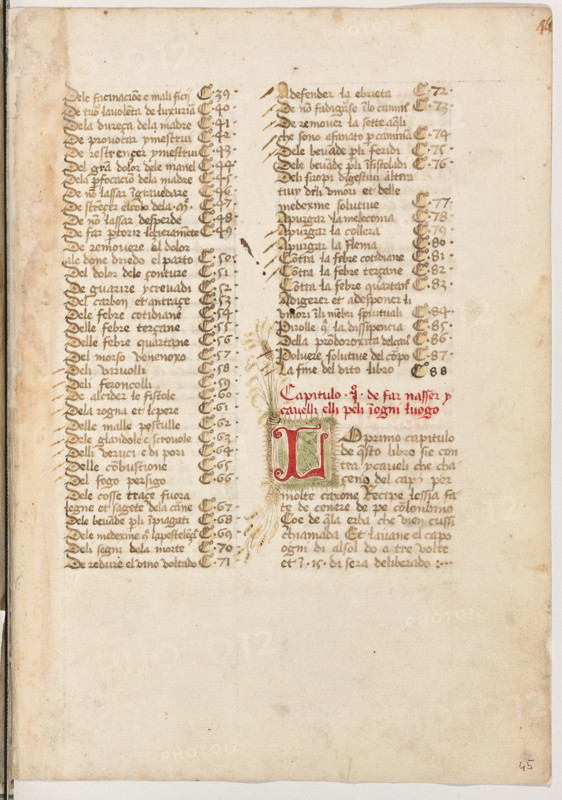 Dele facinacioe e mali ficij C · 39 ·
De tuo la volota de luxuria C · 40 ·
Dela dureça dela madre C · 41 ·
De provocar ymestrui C · 42 ·
De restrençer ymestrui C · 43 ·
Del gra dolor dele mamel C · 44 ·
Dela pfocacio dela madre C · 45 ·
De no lassar igravedare C · 46 ·
De streçer el colo dela C · 47 ·
De no lassar desperde C · 48 ·
De far ptorir C · 49 ·
De removere el dolor
ale done driedo el parto C · 50 ·
Del dolor dele conture C · 51 ·
De guarire ycrevadi C · 52 ·
Del carbon et antraçe C · 53 ·
Dele febre cotidiane C · 54 ·
Delle febre terçane C · 55 ·
Delle febre quartane C · 56 ·
Del morso venenoxo C · 57 ·
Deli viruolli C · 58 ·
Deli feroncolli C · 59 ·
De alcider le fistole C · 60 ·
Dela rogna et lepere C · 61 ·
Delle malle postulle C · 62 ·
Dele glandole e scrovole C · 63 ·
Delli veruci e di pori C · 64 ·
Delle cobustione C · 65 ·
Del fogo persigo C · 66 ·
Dele cosse traçe fuora
legne et sagete dela carne C · 67 ·
Dele bevade p li ipiagati C · 68 ·
Dele medexine q. lapostelega C · 69 ·
Deli segni dela morte C · 70 ·
De redure el vino voltado C · 71
A defender la ebrieta C · 72 ·
De no fadigarse i lo camin C · 73 ·
De remover la sette aqli
che sono afanato p camina C · 74
Dele bevade p li feridi C · 75 ·
Dele bevade p li ifistoladi C · 76 ·
Deli siropi digestivi altera
tivy deli umori et delle
medexine solutive C · 77 ·
A purgar la melecomia C · 78 ·
A purgar la collera C · 79 ·
A purgar la flema C · 80 ·
Cotra la febre cotidiane C · 81 ·
Cotra la febre terçane C · 82 ·
Cotra la febre quartane C · 83 ·
A digerer et adesponer li
umori ili mebri spirituali C · 84 ·
Pirolle q. la dissipencia C · 85 ·
Della C · 86 ·
Polvere solutive del copo C · 87 ·
La fine del dito libro C 88
Capitulo · i · de far nasser y
cavelli elli peli i ogni luogo
Lo primo capitulo
de qsto libro sie con
tra ycaveli che cha
çeno del capo per
molte caxone Recipe lessia fa
te de cenere de pe colonbino
Çoe de qla erba che vien cussi
chiamada Et lavane el capo
ogni di al sol do o tre volte
et i · 15 · di sera deliberado :—
45